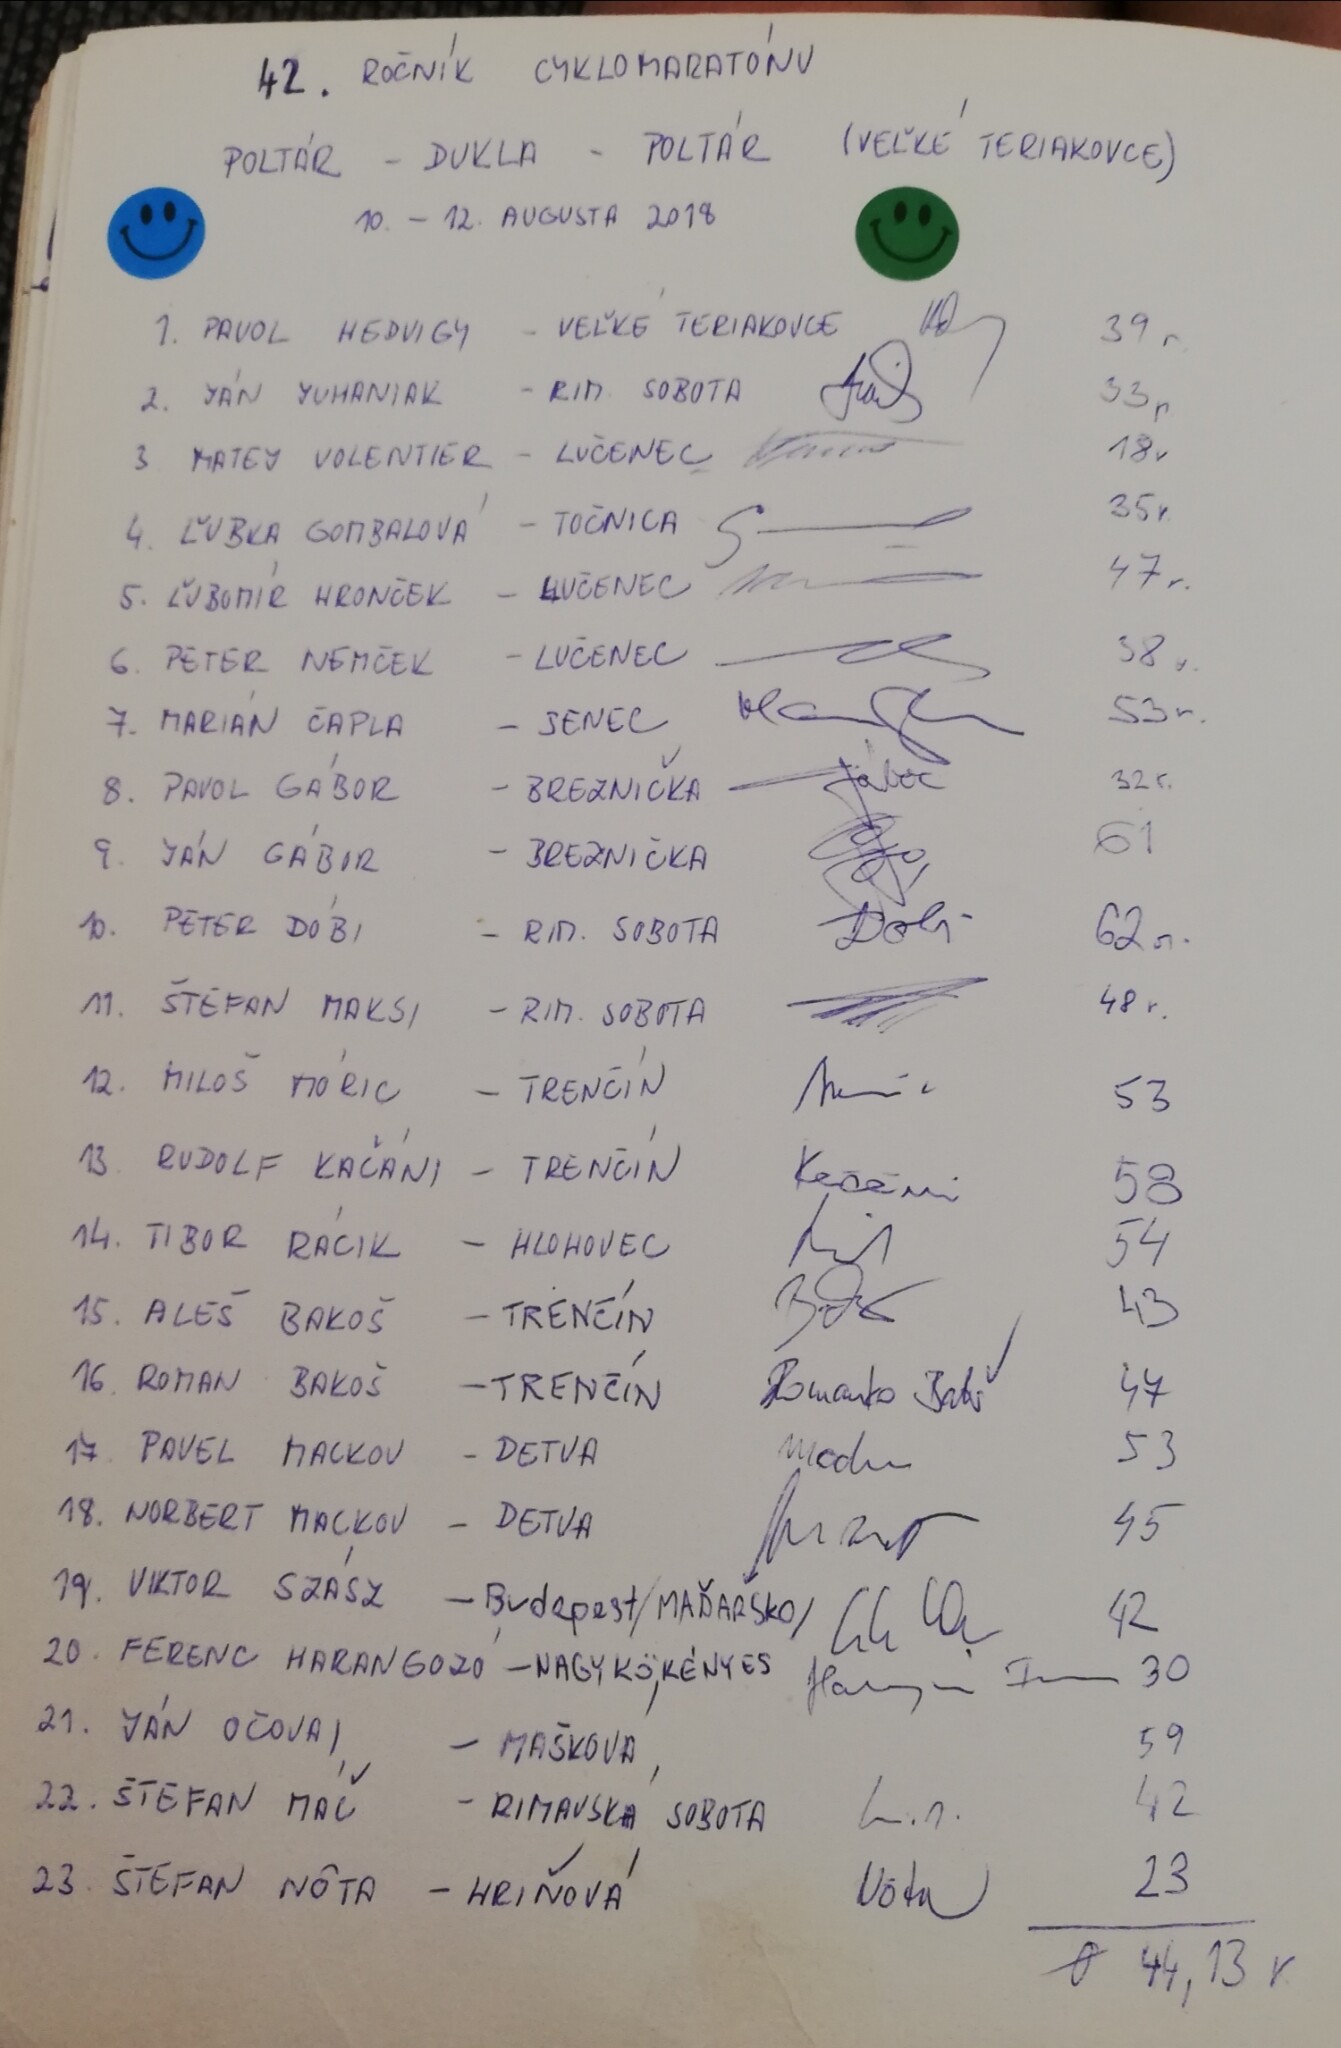 42. ROČNÍK CYKLOMARATÓNU
POLTÁR - DUKLA - POLTÁR (VEĽKÉ TERIAKOVCE)
10. - 12. AUGUSTA 2018
1. PAVOL HEDVIGY - VEĽKÉ TERIAKOVCE 39 r.
2. JÁN JUHANIAK - RIM. SOBOTA 33 r
3 MATEJ VOLENTIER - LUČENEC 18r
4. ĽUBKA GOMBALOVÁ - TOČNICA 35r.
5. ĽUBOMÍR HRONČEK - LUČENEC 47 r.
6. PETER NEMČEK - LUČENEC 38 r.
7. MARIÁN ČAPLA - SENEC 53 r.
8. PAVOL GÁBOR - BREZNIČKA 32 r.
9. JÁN GÁBOR - BREZNIČKA 61
10. PETER DÓBI - RIM. SOBOTA Dobi 62 r.
11. ŠTEFAN MAKSI - RIM. SOBOTA 48 r.
12. MILOŠ MÓRIC - TRENČÍN 53
13 RUDOLF KAČÁNI - TRENČÍN Kačáni 58
14. TIBOR RÁCIK - HLOHOVEC 54
15. ALEŠ BAKOŠ - TRENČÍN 43
16. ROMAN BAKOŠ - TRENČÍN 47
17. PAVEL MACKOV - DETVA 53
18. NORBERT MACKOV - DETVA 45
19. VIKTOR SZÁSZ - Budapest/MAĎARSKO/ 42
20. FERENC HARANGOZÓ - NAGYKÖKÉNYES 30
21. JÁN OČOVAJ - MAŠKOVÁ 59
22. ŠTEFAN MÁČ - RIMAVSKÁ SOBOTA 42
23. ŠTEFAN NÔTA - HRIŇOVÁ Nôta 23
Ø 44,13 r